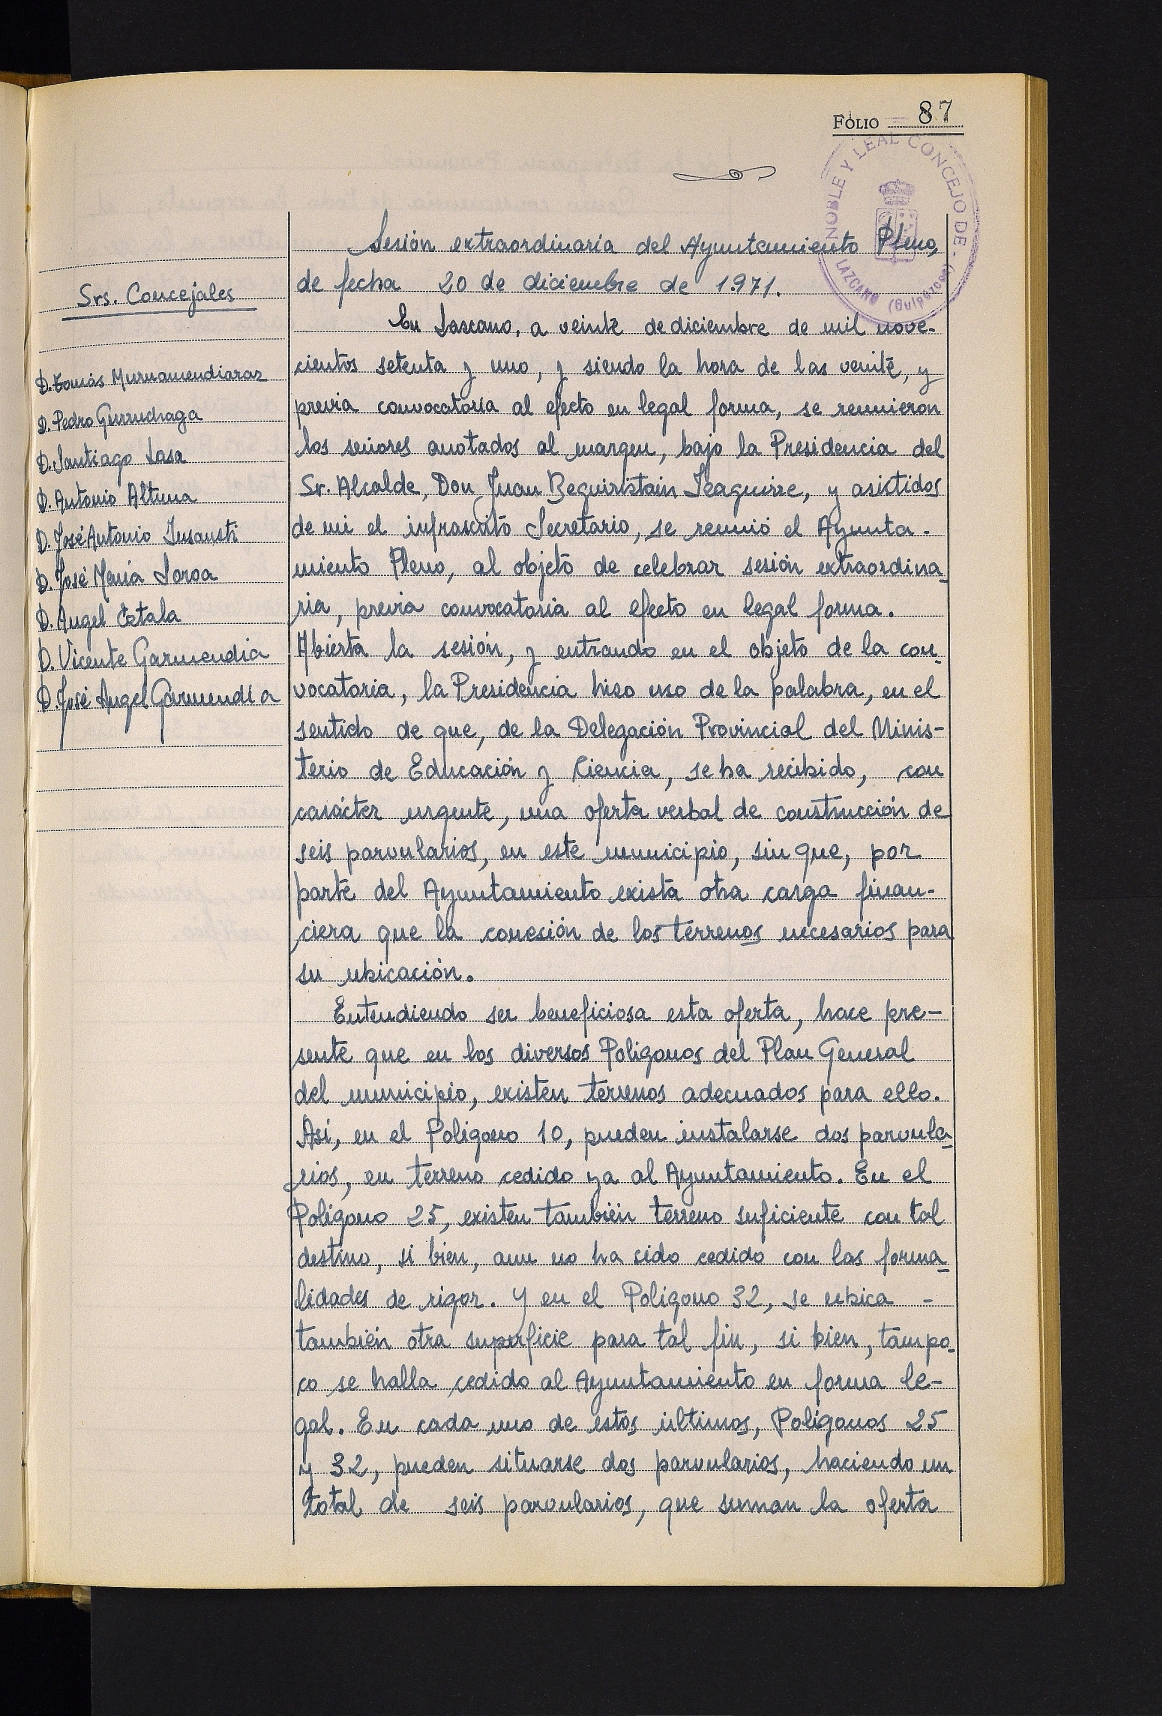 FOLIO 87
NOBLE Y LEAL CONCEJO DE -
LAZCANO (Guipúzcoa)
Srs. Concejales
D. Tomás Murnamendiaraz
D. Pedro Gurruchaga
D. Santiago Lasa
D. Antonio Altuna
D. José Antonio Insausti
D. José María Loroa
D. Angel Eztala
D. Vicente Garmendia
D. José Angel Garmendia
Sesión extraordinaria del Ayuntamiento Pleno,
de fecha 20 de diciembre de 1.971.
En Lazcano, a veinte de diciembre de mil nove-
cientos setenta y uno, y siendo la hora de las veinte, y
previa convocatoria al efecto en legal forma, se reunieron
los señores anotados al margen, bajo la Presidencia del
Sr. Alcalde, Don Juan Beguiristain Iraguirre, y asistidos
de mi el infrascrito Secretario, se reunió el Ayunta-
miento Pleno, al objeto de celebrar sesión extraordina-
ria, previa convocatoria al efecto en legal forma.
Abierta la sesión, y entrando en el objeto de la con-
vocatoria, la Presidencia hizo uso de la palabra, en el
sentido de que, de la Delegación Provincial del Minis-
terio de Educación y Ciencia, se ha recibido, con
carácter urgente, una oferta verbal de construcción de
seis parvularios, en este municipio, sin que, por
parte del Ayuntamiento exista otra carga finan-
ciera que la conesión de los terrenos necesarios para
su ubicación.
Entendiendo ser beneficiosa esta oferta, hace pre-
sente que en los diversos Poligonos del Plan General
del municipio, existen terrenos adecuados para ello.
Así, en el Poligono 10, pueden instalarse dos parvula-
rios, en terreno cedido ya al Ayuntamiento. En el
Poligono 25, existen también terreno suficiente con tal
destino, si bien, aun no ha sido cedido con las forma-
lidades de rigor. Y en el Poligono 32, se ubica -
también otra superficie para tal fin, si bien, tampo-
co se halla cedido al Ayuntamiento en forma le-
gal. En cada uno de estos últimos, Poligonos 25
y 32, pueden situarse dos parvularios, haciendo un
total de seis parvularios, que suman la oferta